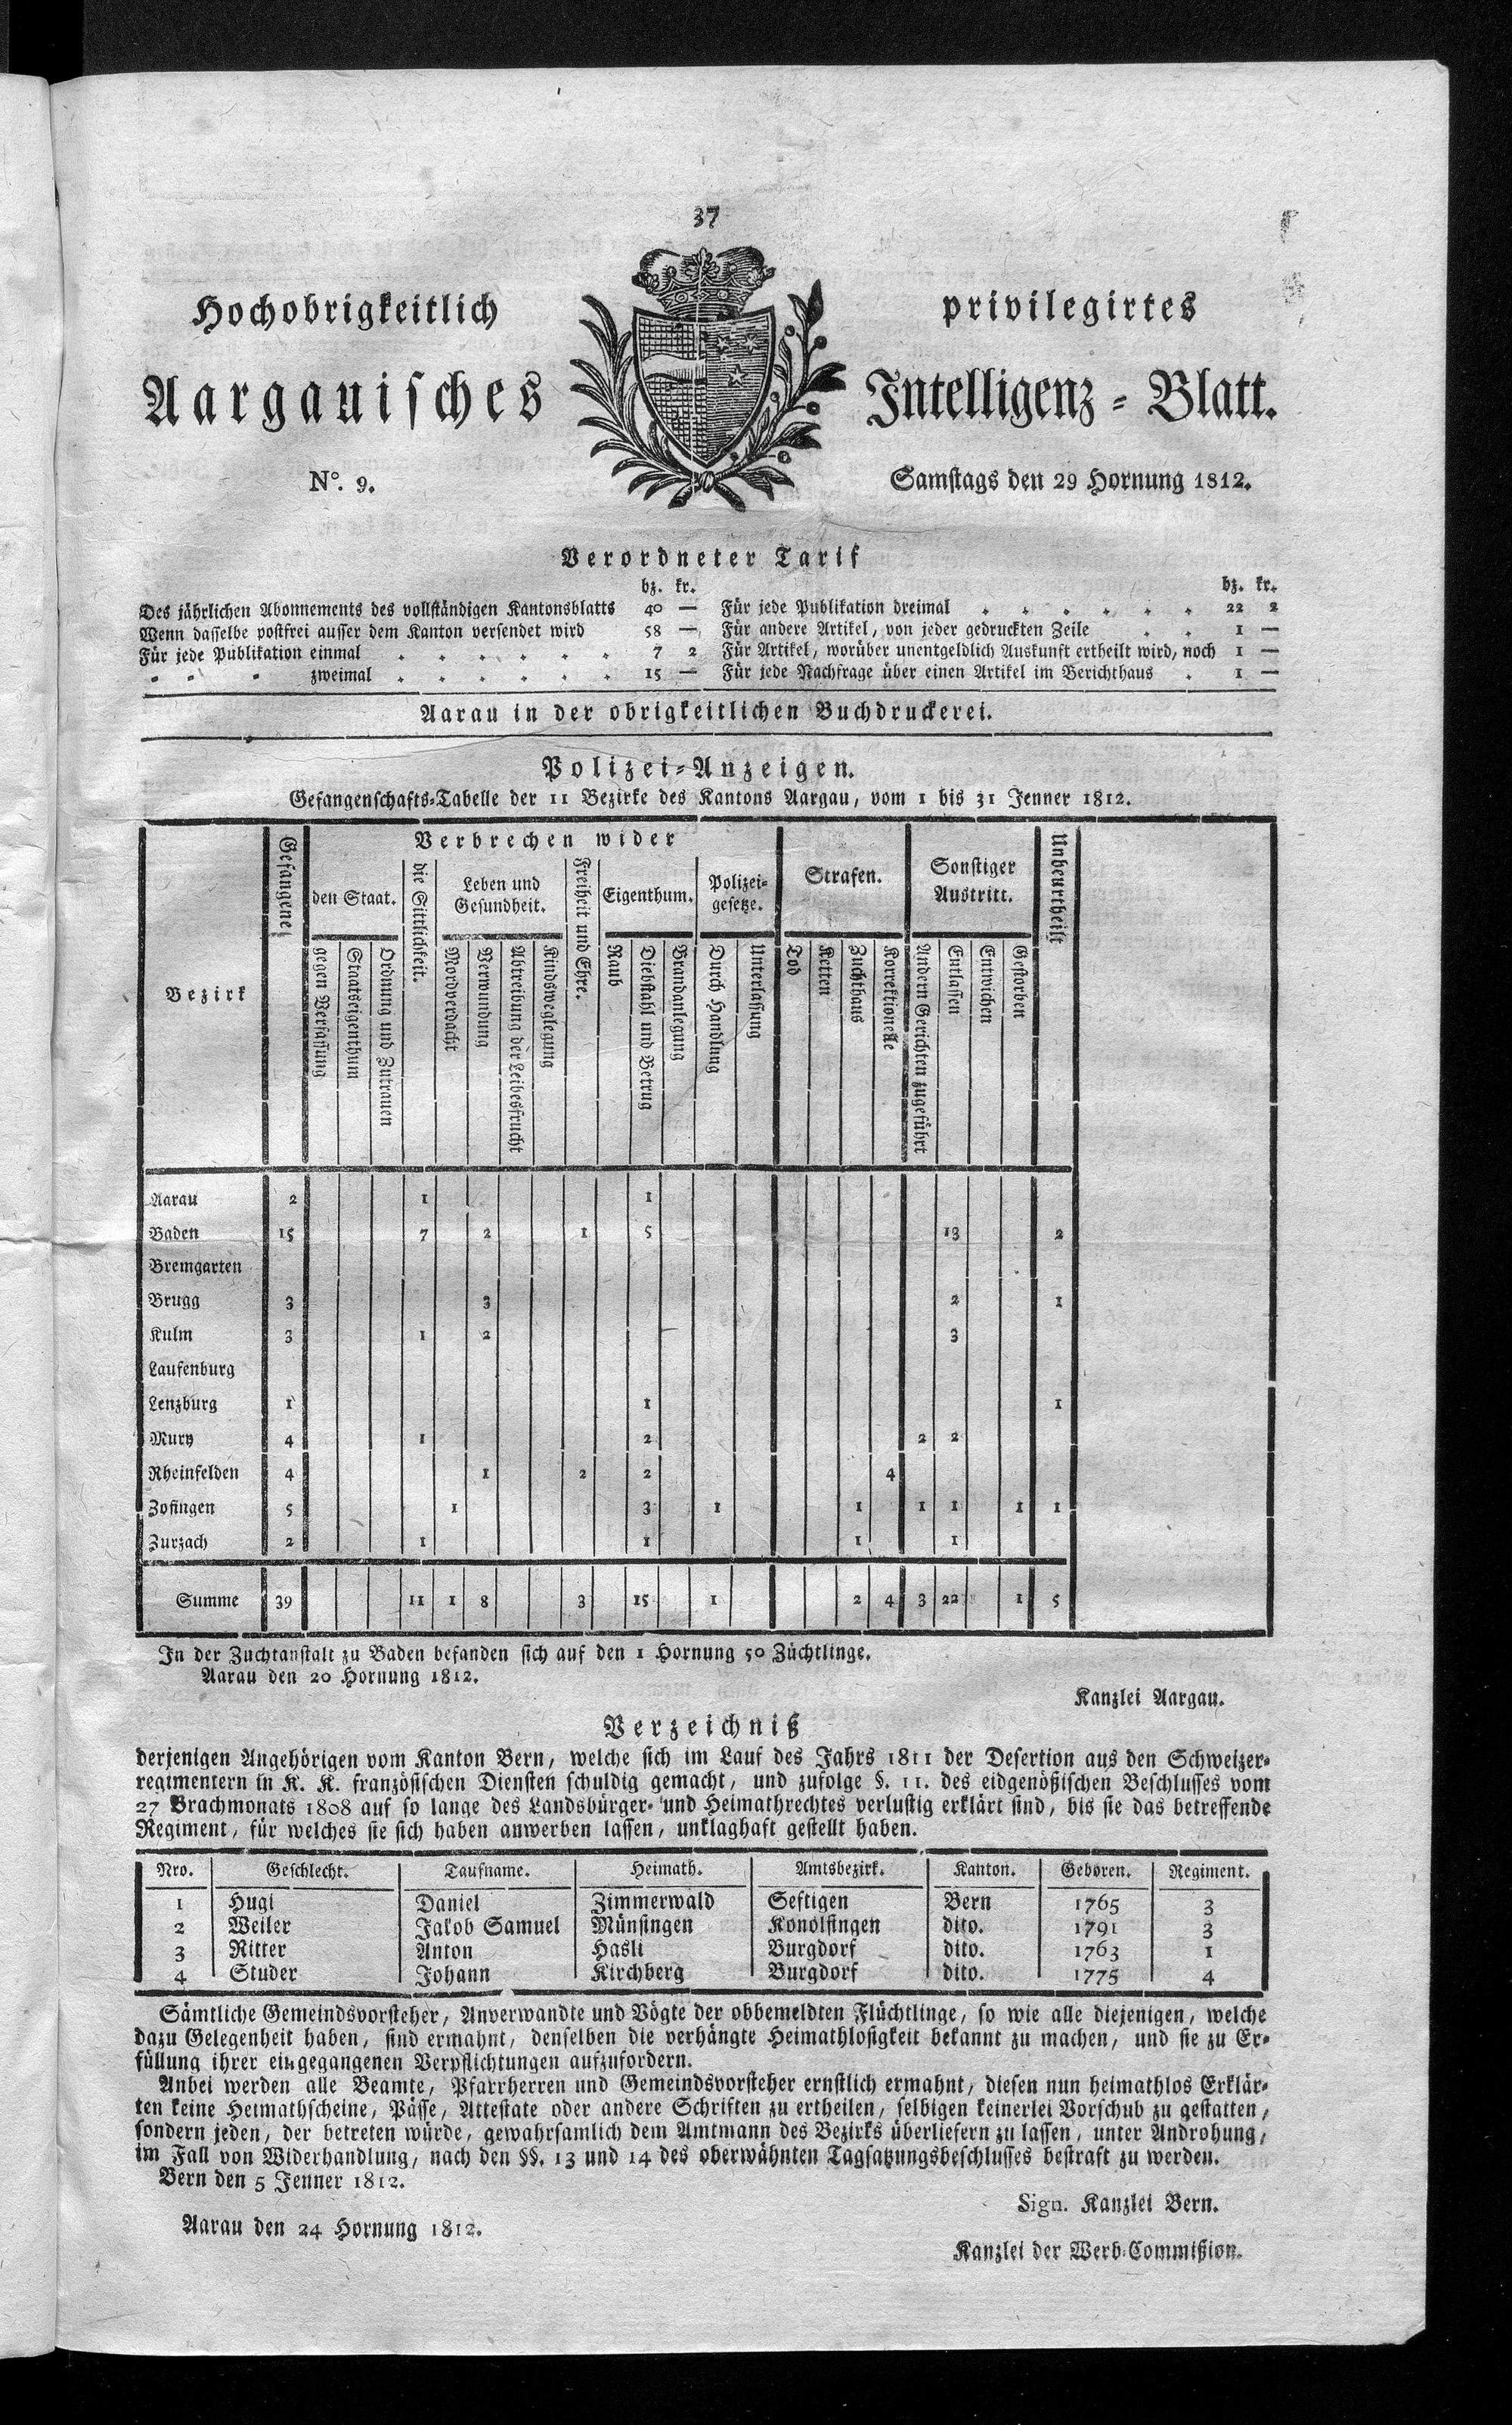 37
Hochobrigkeitlich privilegirtes
Aargauisches Intelligenz-Blatt.
N°. 9. Samstags den 29 Hornung 1812.
Verordneter Tarif
bz. kr. bz. kr.
Des jährlichen Abonnements des vollständigen Kantonsblatts 40 — Für jede Publikation dreimal . . . . . . 22 2
Wenn dasselbe postfrei ausser dem Kanton versendet wird 58 — Für andere Artikel, von jeder gedruckten Zeile . . 1 —
Für jede Publikation einmal . . . . . . 7 2 Für Artikel, worüber unentgeldlich Auskunft ertheilt wird, noch 1 —
" " " zweimal . . . . . . 15 — Für jede Nachfrage über einen Artikel im Berichthaus . 1 —
Aarau in der obrigkeitlichen Buchdruckerei.
Polizei-Anzeigen.
Gefangenschafts-Tabelle der 11 Bezirke des Kantons Aargau, vom 1 bis 31 Jenner 1812.
Bezirk
Gefangene
Verbrechen wider
den Staat.
gegen Verfassung
Staatseigenthum
Ordnung und Zutrauen
die Sittlichkeit.
Leben und
Gesundheit.
Mordverdacht
Verwundung
Abtreibung der Leibesfrucht
Kindsweglegung
Freiheit und Ehre.
Eigenthum.
Raub
Diebstahl und Betrug
Brandanlegung
Polizei-
gesetze.
Durch Handlung
Unterlassung
Strafen.
Tod
Ketten
Zuchthaus
Korektionelle
Sonstiger
Austritt.
Andern Gerichten zugeführt
Entlassen
Entwichen
Gestorben
Unbeurtheilt
Aarau 2 1 1
Baden 15 7 2 1 5 13 2
Bremgarten
Brugg 3 3 2 1
Kulm 3 1 2 3
Laufenburg
Lenzburg 1 1 1
Mury 4 1 2 2 2
Rheinfelden 4 1 2 2 4
Zofingen 5 1 3 1 1 1 1 1 1
Zurzach 2 1 1 1 1
Summe 39 11 1 8 3 15 1 2 4 3 22 1 5
In der Zuchtanstalt zu Baden befanden sich auf den 1 Hornung 50 Züchtlinge.
Aarau den 20 Hornung 1812.
Kanzlei Aargau.
Verzeichniß
derjenigen Angehörigen vom Kanton Bern, welche sich im Lauf des Jahrs 1811 der Desertion aus den Schweizer-
regimentern in K. K. französischen Diensten schuldig gemacht, und zufolge §. 11. des eidgenößischen Beschlusses vom
27 Brachmonats 1808 auf so lange des Landsbürger- und Heimathrechtes verlustig erklärt sind, bis sie das betreffende
Regiment, für welches sie sich haben anwerben lassen, unklaghaft gestellt haben.
Nro. Geschlecht. Taufname. Heimath. Amtsbezirk. Kanton. Geboren. Regiment.
1 Hugi Daniel Zimmerwald Seftigen Bern 1765 3
2 Weiler Jakob Samuel Münsingen Konolfingen dito. 1791 3
3 Ritter Anton Hasli Burgdorf dito. 1763 1
4 Studer Johann Kirchberg Burgdorf dito. 1775 4
Sämtliche Gemeindsvorsteher, Anverwandte und Vögte der obbemeldten Flüchtlinge, so wie alle diejenigen, welche
dazu Gelegenheit haben, sind ermahnt, denselben die verhängte Heimathlosigkeit bekannt zu machen, und sie zu Er-
füllung ihrer eingegangenen Verpflichtungen aufzufordern.
Anbei werden alle Beamte, Pfarrherren und Gemeindsvorsteher ernstlich ermahnt, diesen nun heimathlos Erklär-
ten keine Heimathscheine, Pässe, Attestate oder andere Schriften zu ertheilen, selbigen keinerlei Vorschub zu gestatten,
sondern jeden, der betreten würde, gewahrsamlich dem Amtmann des Bezirks überliefern zu lassen, unter Androhung,
im Fall von Widerhandlung, nach den §§. 13 und 14 des oberwähnten Tagsatzungsbeschlusses bestraft zu werden.
Bern den 5 Jenner 1812.
Sign. Kanzlei Bern.
Aarau den 24 Hornung 1812.
Kanzlei der Werb-Commißion.